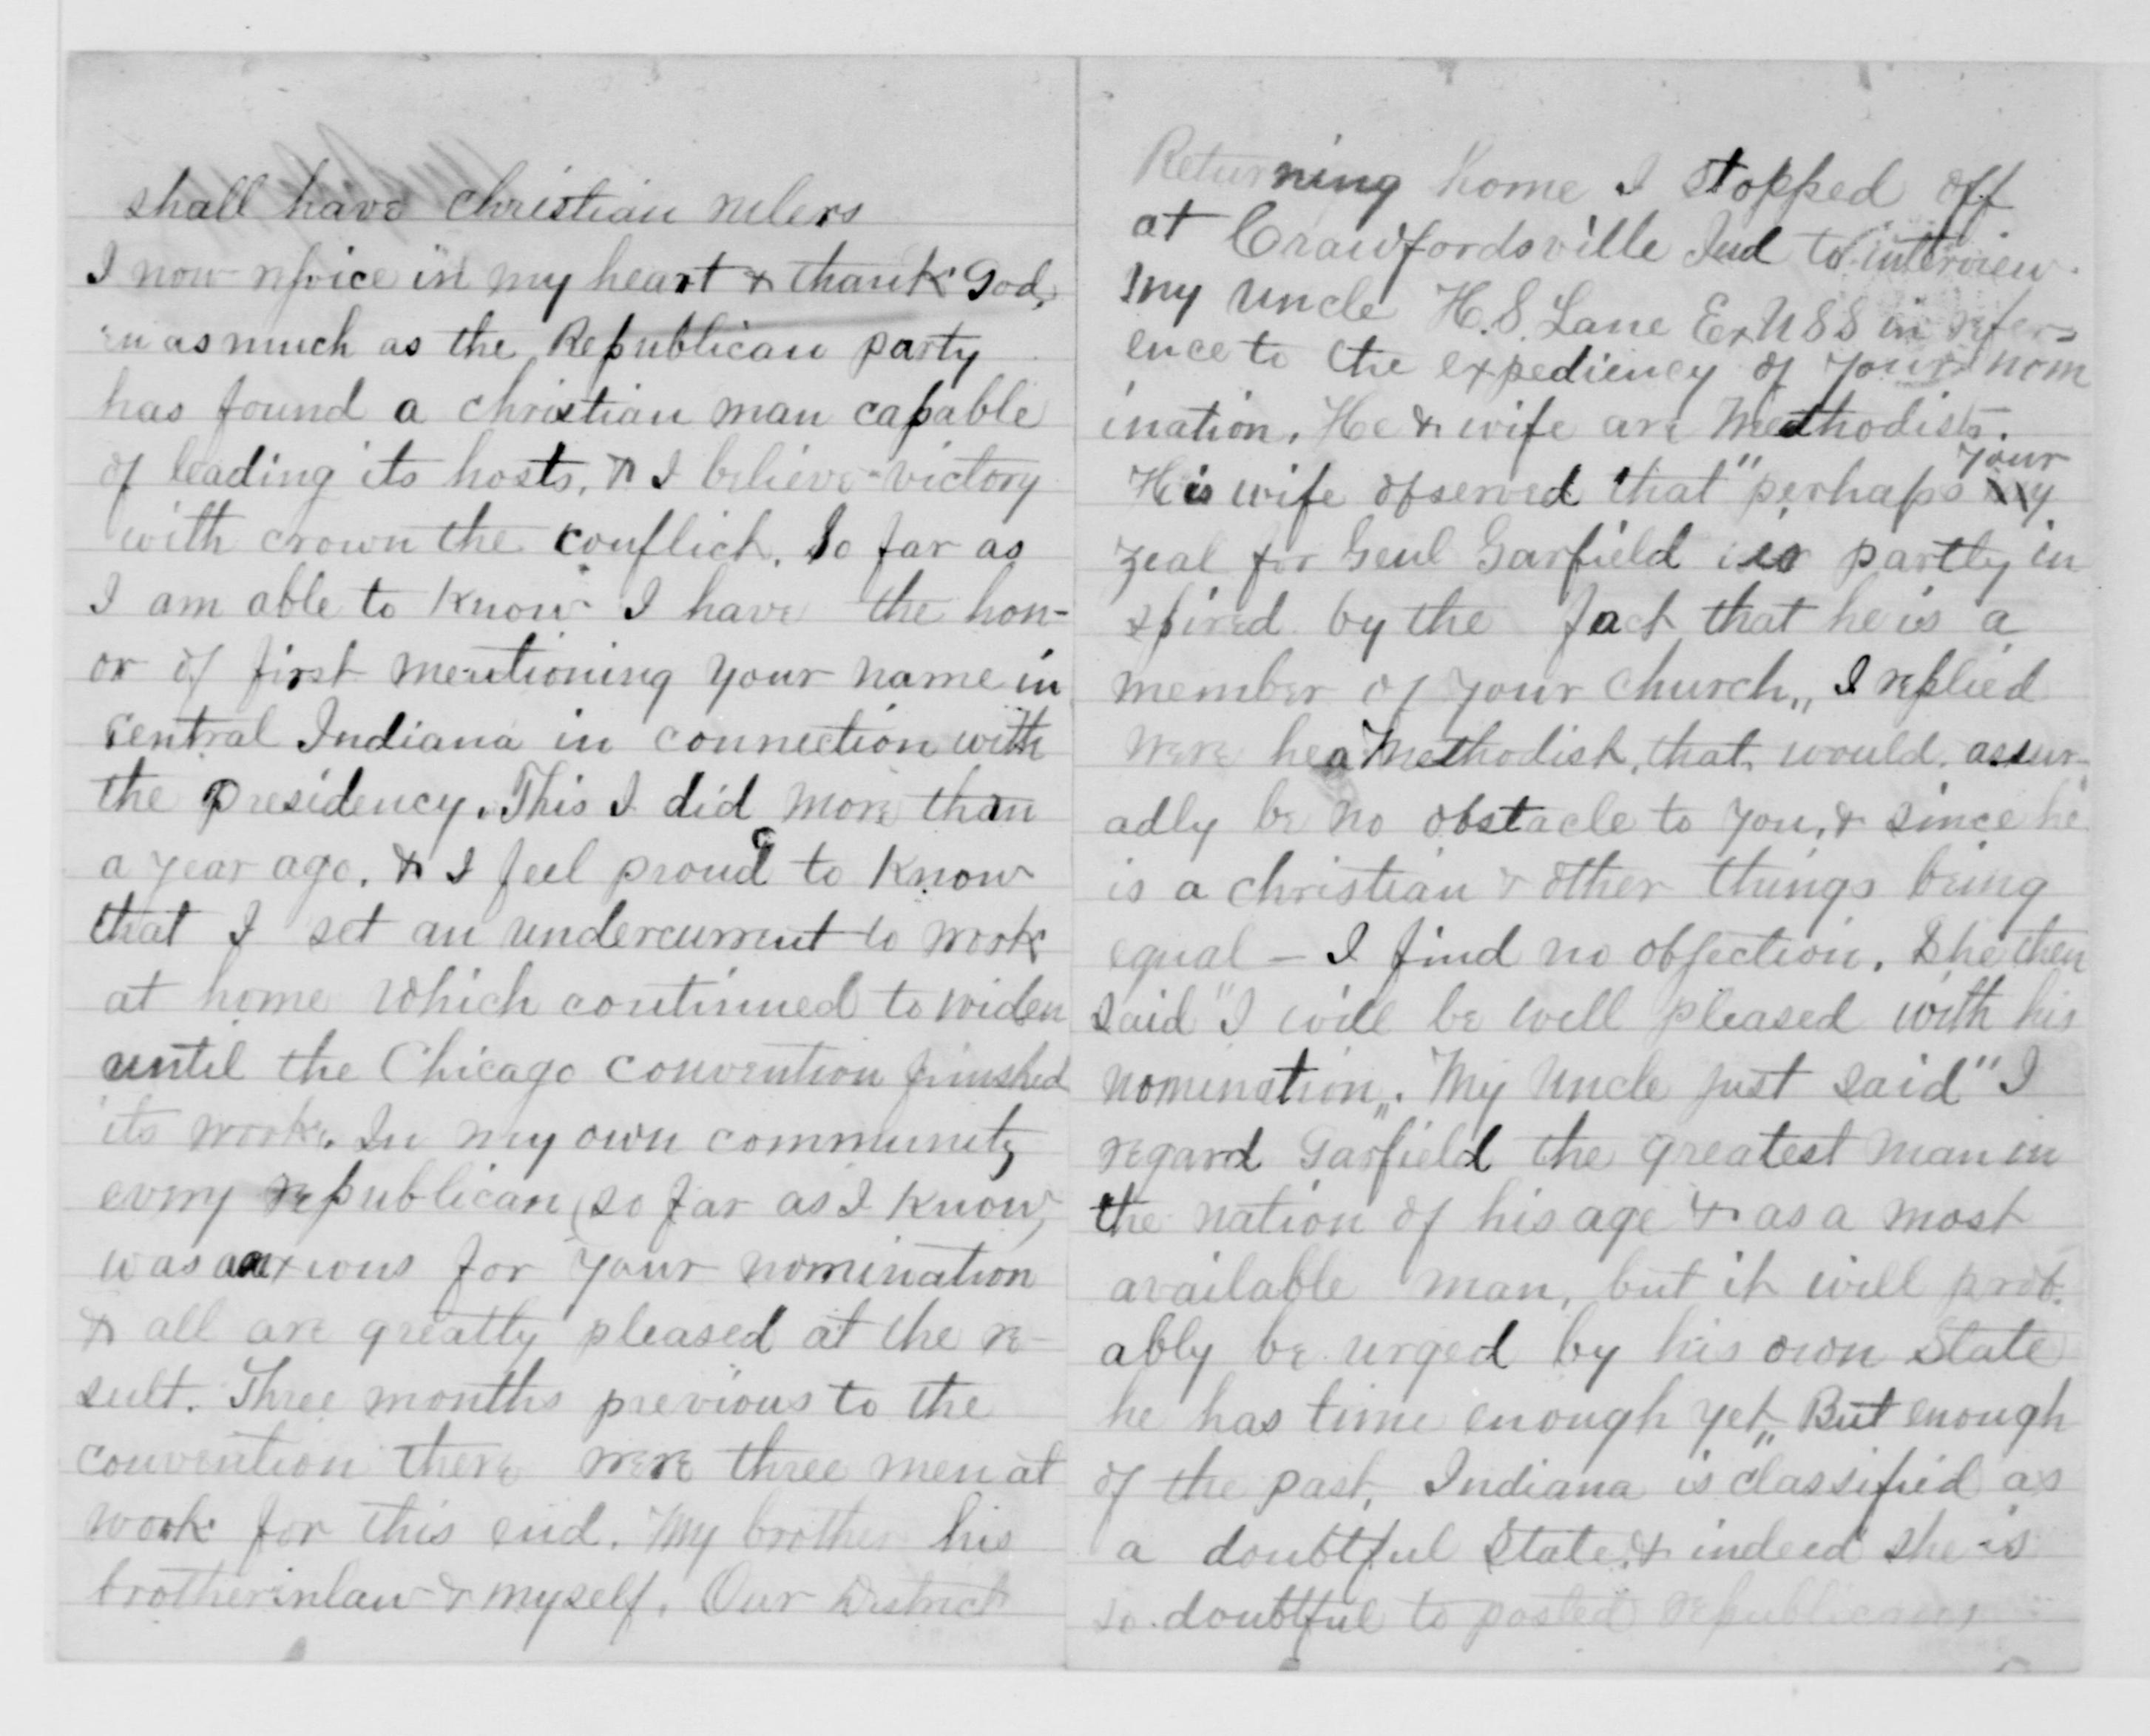 shall have christian rulers
I now rejoice in my heart & thank God,
in as much as the Republican party
has found a christian man capable
of leading its hosts, & I believe victory
with crown the conflict. So far as
I am able to know I have the hon-
or of first mentioning your name in
central Indiana in connection with
the presidency. This I did more than
a year ago. & I feel proud to know
that I set an undercurrent to work
at home which continued to widen
until the Chicago convention finished
its work. In my own community
every republican (so far as I know)
was anxious for your nomination
& all are greatly pleased at the re-
sult. Three months previous to the
convention there were three men at
work for this end. My brother his
brotherinlaw & myself. Our District
Returning home I stopped off
at Crawfordsville Ind to interview
my uncle H. S. Lane Ex U S S in refer=
ence to the expediency of your nom
ination. He & wife are Methodists.
His wife observed that "perhaps your my
zeal for Genl Garfield is partly in
spired by the fact that he is a
member of your church„ I replied
were he a Methodist, that would assur-
adly be no obstacle to you, & since he
is a christian & other things being
equal – I find no objection. She then
said "I will be well pleased with his
nomination„. My Uncle just said "I
regard Garfield the greatest man in
the nation of his age & as a most
available man, but it will prob-
ably be urged by his own State
he has time enough yet„ But enough
of the past, Indiana is classified as
a doubtful State, & indeed she is
so doubtful to posted republicans